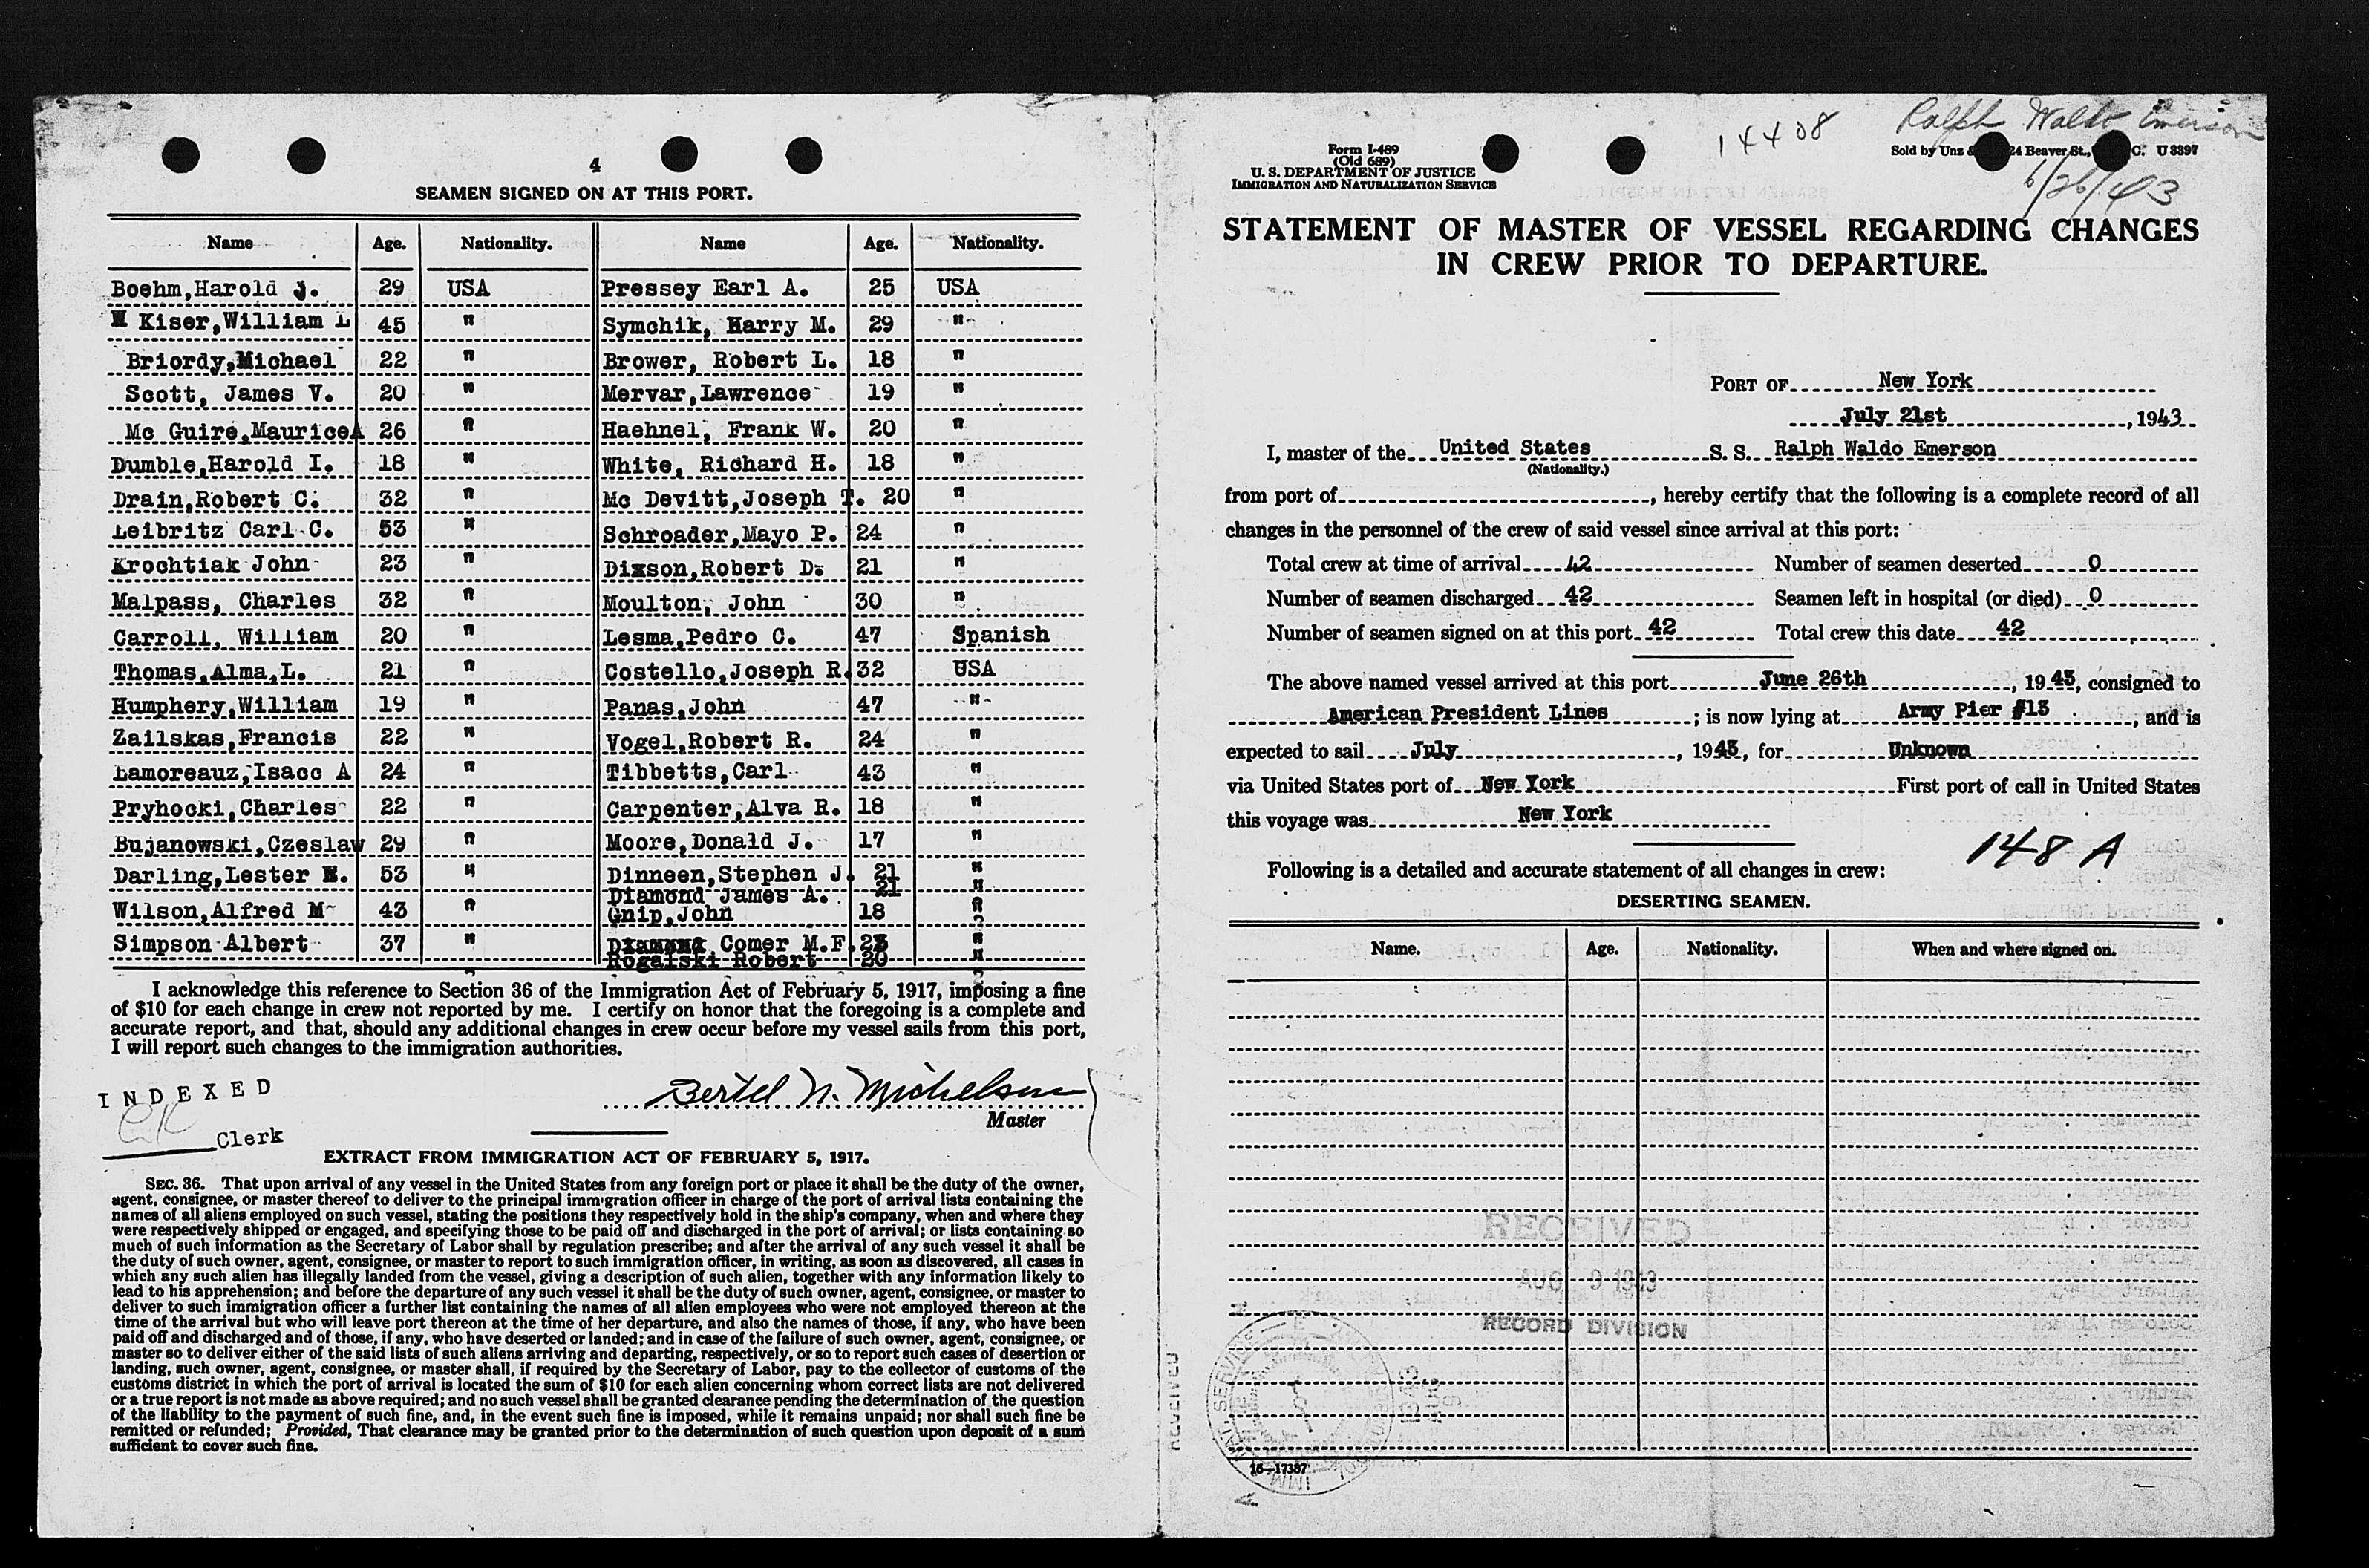 4
SEAMEN SIGNED ON AT THIS PORT.
Name Age. Nationality. Name Age. Nationality.
Boehm,Harold J. 29 USA Pressey Earl A. 25 USA
Kiser,William L 45 " Symchik, Harry M. 29 "
Briordy,Michael 22 " Brower, Robert L. 18 "
Scott, James V. 20 " Mervar,Lawrence 19 "
Mc Guire,MauriceA 26 " Haehnel, Frank W. 20 "
Dumble,Harold I. 18 " White, Richard H. 18 "
Drain,Robert C. 32 " Mc Devitt,Joseph T. 20 "
Leibritz Carl C. 53 " Schroader,Mayo P. 24 "
Krochtiak John 23 " Dixson,Robert D. 21 "
Malpass, Charles 32 " Moulton, John 30 "
Carroll, William 20 " Lesma,Pedro C. 47 Spanish
Thomas,Alma,L. 21 " Costello,Joseph R. 32 USA
Humphery,William 19 " Panas,John 47 "
Zailskas,Francis 22 " Vogel,Robert R. 24 "
Lamoreauz,Isacc A 24 " Tibbetts,Carl 43 "
Pryhocki,Charles 22 " Carpenter,Alva R. 18 "
Bujanowski,Czeslaw 29 " Moore,Donald J. 17 "
Darling,Lester E. 53 " Dinneen,Stephen J. 21 "
Diamond James A. 21 "
Wilson,Alfred M 43 " Gnip,John 18 "
Simpson Albert 37 " Comer M.F. "
Rogalski Robert 20 "
I acknowledge this reference to Section 36 of the Immigration Act of February 5, 1917, imposing a fine
of $10 for each change in crew not reported by me. I certify on honor that the foregoing is a complete and
accurate report, and that, should any additional changes in crew occur before my vessel sails from this port,
I will report such changes to the immigration authorities.
INDEXED
Bertel N. Michelsen
Master
Clerk
EXTRACT FROM IMMIGRATION ACT OF FEBRUARY 5, 1917.
SEC. 36. That upon arrival of any vessel in the United States from any foreign port or place it shall be the duty of the owner,
agent, consignee, or master thereof to deliver to the principal immigration officer in charge of the port of arrival lists containing the
names of all aliens employed on such vessel, stating the positions they respectively hold in the ship's company, when and where they
were respectively shipped or engaged, and specifying those to be paid off and discharged in the port of arrival; or lists containing so
much of such information as the Secretary of Labor shall by regulation prescribe; and after the arrival of any such vessel it shall be
the duty of such owner, agent, consignee, or master to report to such immigration officer, in writing, as soon as discovered, all cases in
which any such alien has illegally landed from the vessel, giving a description of such alien, together with any information likely to
lead to his apprehension; and before the departure of any such vessel it shall be the duty of such owner, agent, consignee, or master to
deliver to such immigration officer a further list containing the names of all alien employees who were not employed thereon at the
time of the arrival but who will leave port thereon at the time of her departure, and also the names of those, if any, who have been
paid off and discharged and of those, if any, who have deserted or landed; and in case of the failure of such owner, agent, consignee, or
master so to deliver either of the said lists of such aliens arriving and departing, respectively, or so to report such cases of desertion or
landing, such owner, agent, consignee, or master shall, if required by the Secretary of Labor, pay to the collector of customs of the
customs district in which the port of arrival is located the sum of $10 for each alien concerning whom correct lists are not delivered
or a true report is not made as above required; and no such vessel shall be granted clearance pending the determination of the question
of the liability to the payment of such fine, and, in the event such fine is imposed, while it remains unpaid; nor shall such fine be
remitted or refunded; Provided, That clearance may be granted prior to the determination of such question upon deposit of a sum
sufficient to cover such fine.
14408
Ralph Waldo Emerson
6/26/43
Form I-489
(Old 689)
U. S. DEPARTMENT OF JUSTICE
IMMIGRATION AND NATURALIZATION SERVICE
Sold by Unz & 24 Beaver St., C. U 3397
STATEMENT OF MASTER OF VESSEL REGARDING CHANGES
IN CREW PRIOR TO DEPARTURE.
PORT OF New York
July 21st, 1943
I, master of the United States S. S. Ralph Waldo Emerson
(Nationality.)
from port of , hereby certify that the following is a complete record of all
changes in the personnel of the crew of said vessel since arrival at this port:
Total crew at time of arrival 42 Number of seamen deserted 0
Number of seamen discharged 42 Seamen left in hospital (or died) 0
Number of seamen signed on at this port 42 Total crew this date 42
The above named vessel arrived at this port June 26th, 1943, consigned to
American President Lines; is now lying at Army Pier #13, and is
expected to sail July, 1943, for Unknown
via United States port of New York First port of call in United States
this voyage was New York
148 A
Following is a detailed and accurate statement of all changes in crew:
DESERTING SEAMEN.
Name. Age. Nationality. When and where signed on.
RECEIVED
AUG 9 1943
RECORD DIVISION
RECEIVED
16—17387